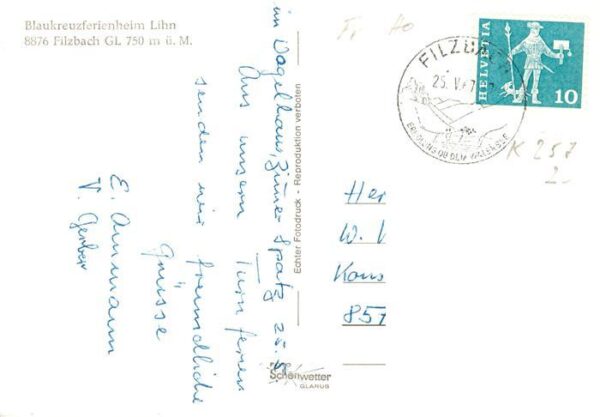 Blaukreuzferienheim Lihn
8876 Filzbach GL 750 m ü. M.
im Vogelhaus, Zimmer Spatz 25.
Aus unsern Turnferien
senden wir freundliche
Grüsse
E. Ammann
V. Gerber
Echter Fotodruck - Reproduktion verboten
Foto
Schönwetter
GLARUS
Fr Ho
FILZBACH
25. V.
ERHOLUNG OB DEM WALENSEE
HELVETIA
10
K 257
2.-
Her
W.
Kons
857